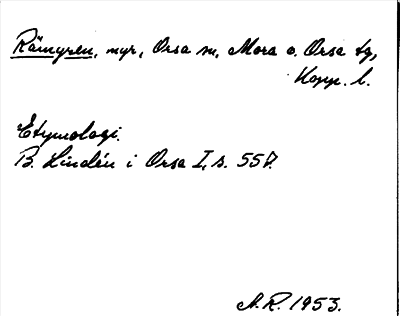 Råmyren, myr, Orsa sn, Mora o. Orsa tg,
Kopp. l.
Etymologi.
B. Lindén i Orsa I, s. 557.
A.R. 1953.